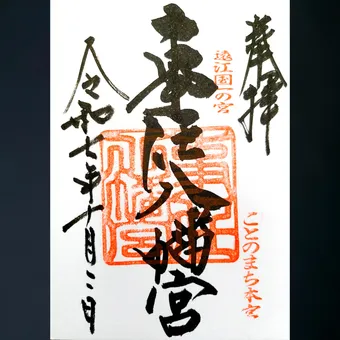 奉拝
遠江国一の宮
ことのまち本宮
事任八幡宮
令和七年十月二日